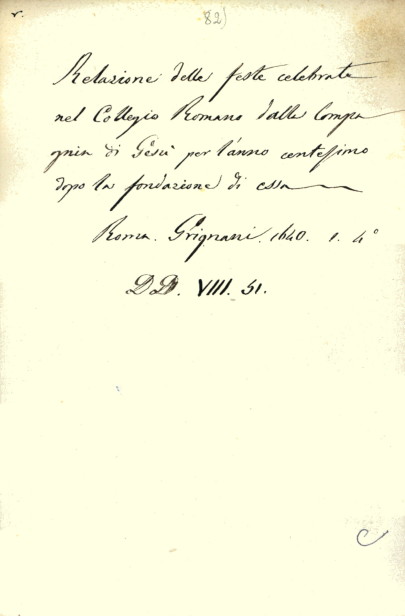 v.
82)
Relazione delle feste celebrate
nel Collegio Romano dalla Compa
gnia di Gesù per l'anno centessimo
dopo la fondazione di essa
Roma. Grignani. 1640. 1. 4°
DD. VIII. 51.
C